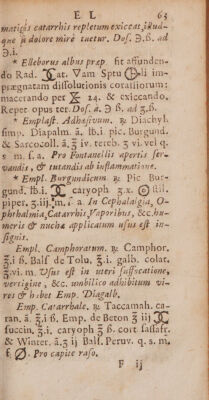 E L 63
matigis catarrhis repletum exiccat, illud-
que à dolore mirè tuetur. Dos. ℈.ß. ad
℈.i.
* Elleborus albus præp. fit affunden-
do Rad. at. Vam Sptu li im-
prægnatam dissolutionis corallorum:
macerando per 24. & exiccando.
Reper opus ter. Dos. a. ℈ ß. ad ʒ.ß.
* Emplast. Adhæsivum. ℞ Diachyl.
simp. Diapalm. ā. lb.i. pic. Burgund.
& Sarcocoll. ā. ʒ iv. tereb. ʒ vi. vel q.
s. m. f. a. Pro Fontanellis apertis ser-
vandis, & tutandis ab inflammatione.
* Empl. Burgundicum ℞ Pic Bur-
gund. lb.i. caryoph ʒ.x. still.
piper. ʒ.iij. m. f. a In Cephalalgia, O-
phthalmia, Catarrhis, Vaporibus, &c. hu-
meris & nuchæ applicatum usus est in-
signis.
Empl. Camphoratum. ℞ Camphor.
ʒ.i ß. Balf de Tolu. ʒ.i. galb. colat.
ʒ.vi. m. Usus est in uteri suffocatione,
vertigine, &c. umbilico adhibitum vi-
ros & habet Emp. Diagalb.
Emp. Catarrhale. ℞ Taccamah. ca-
ran. ā. ʒ.i ß. Emp. de Beton ʒ iij
succin. ʒ.i. caryoph ʒ ß. cort sassafr.
& Winter. ā. ʒ ij Balf. Peruv. q. s. m.
f. Pro capite raso.
F ij